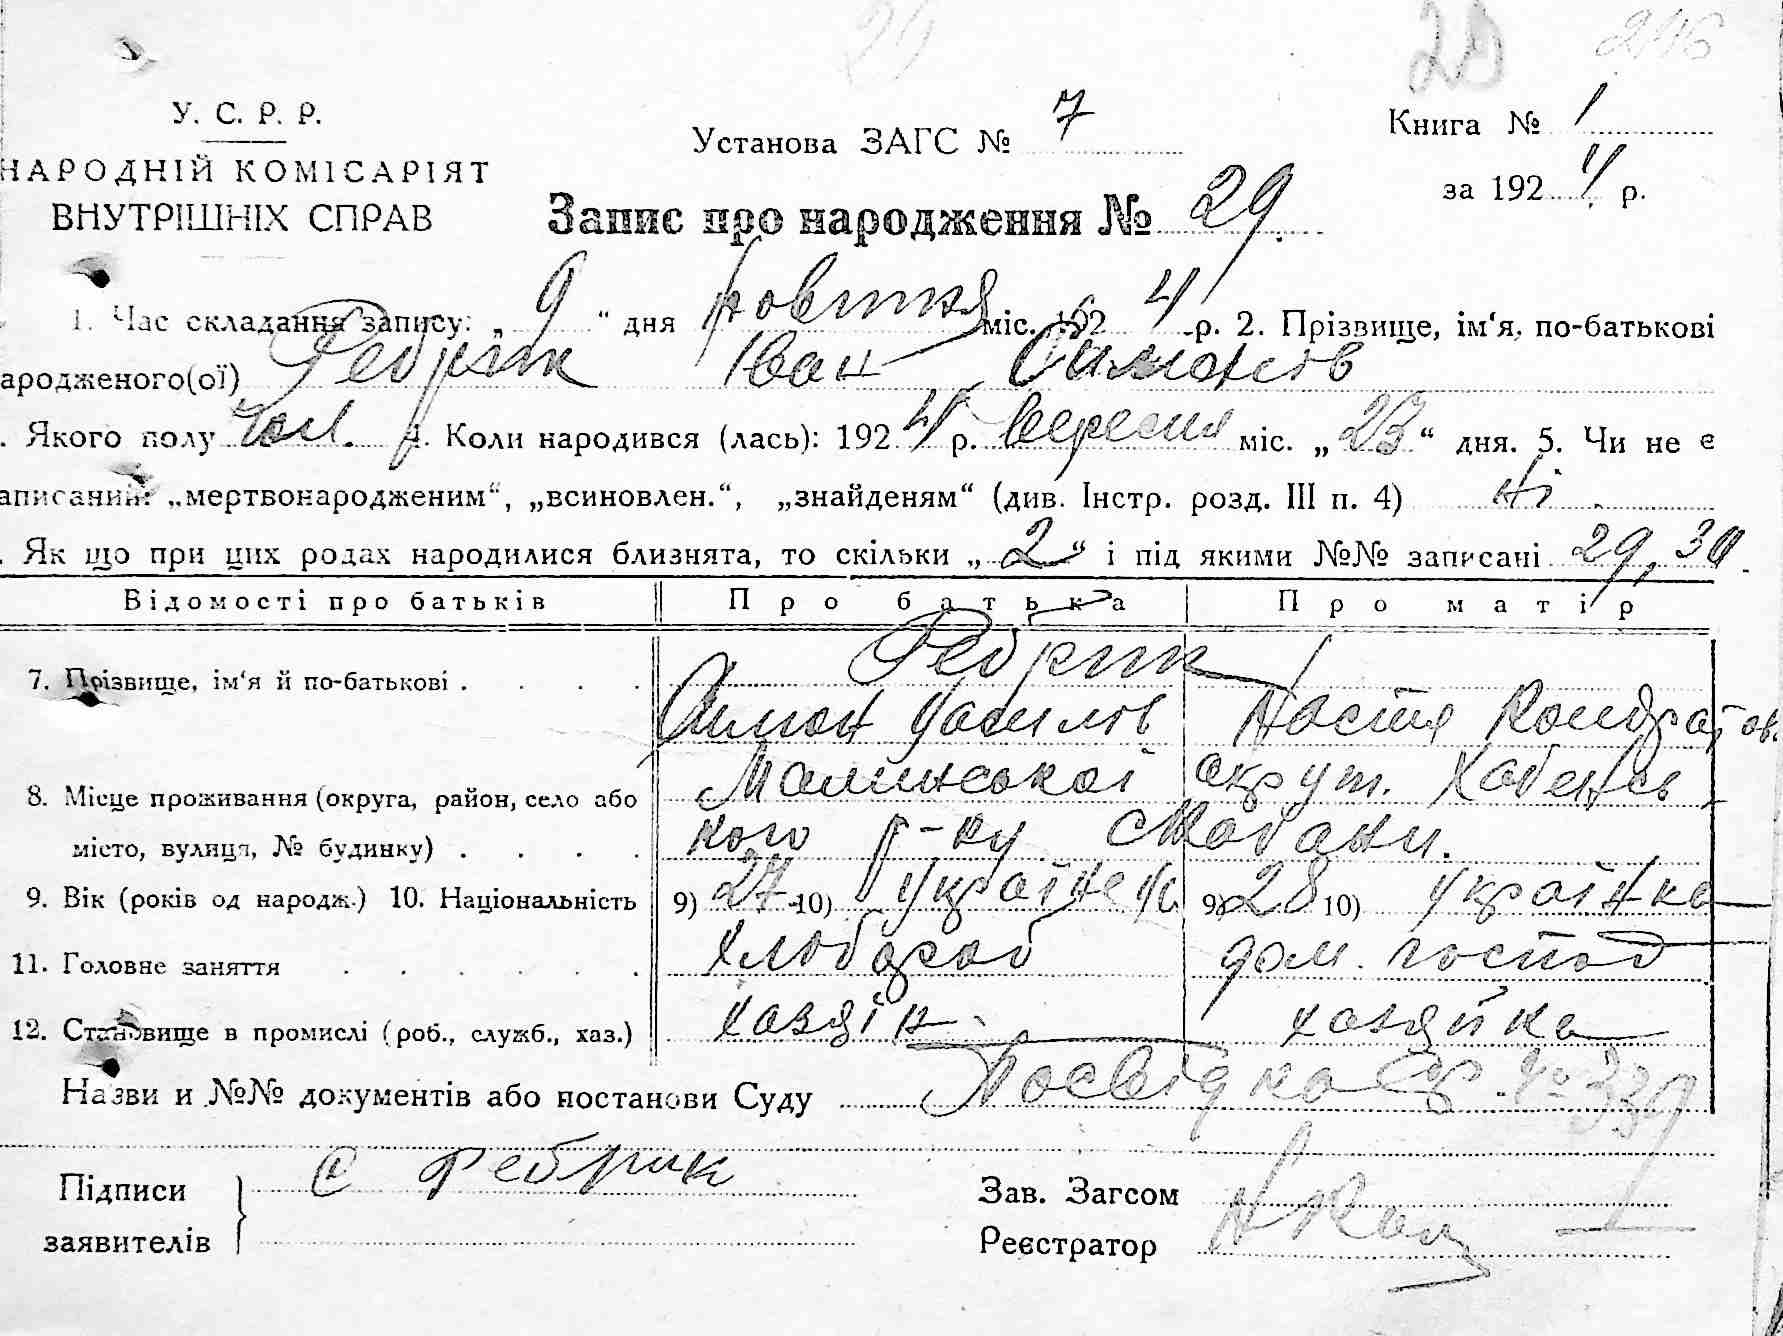 29 20 246
У. С. Р. Р.
НАРОДНІЙ КОМІСАРІЯТ
ВНУТРІШНІХ СПРАВ
Установа ЗАГС № 7
Книга № 1
за 1924 р.
Запис про народження № 29.
1. Час складання запису: „ 9 “ дня Жовтня міс. 1924 р. 2. Прізвище, ім‘я, по-батькові
ародженого(ої) Ребрик Іван Симонів
. Якого полу чол. 4. Коли народився (лась): 1924 р. Вересня міс. „ 23 “ дня. 5. Чи не є
аписаний: „мертвонародженим“, „всиновлен.“, „знайденям“ (див. Інстр. розд. III п. 4) ні
. Як що при цих родах народилися близнята, то скільки „ 2 “ і під якими №№ записані 29, 30.
Відомості про батьків Про батька Про матір
Ребрик
7. Прізвище, ім‘я й по-батькові . . . . Симон Данилов Настя Кондратов.
8. Місце проживання (округа, район, село або Малинської округ. Хабенсь-
місто, вулиця, № будинку) . . . . кого р-ну
9. Вік (років од народж.) 10. Національність 9) 27 10) Українец 9) 28 10) українка
11. Головне заняття . . . . . . хлібороб дом. господ
12. Становище в промислі (роб., служб., хаз.) хазяін хазяйка
Назви и №№ документів або постанови Суду Посвідка № 339
Підписи С Ребрик
заявителів
Зав. Загсом
Реєстратор